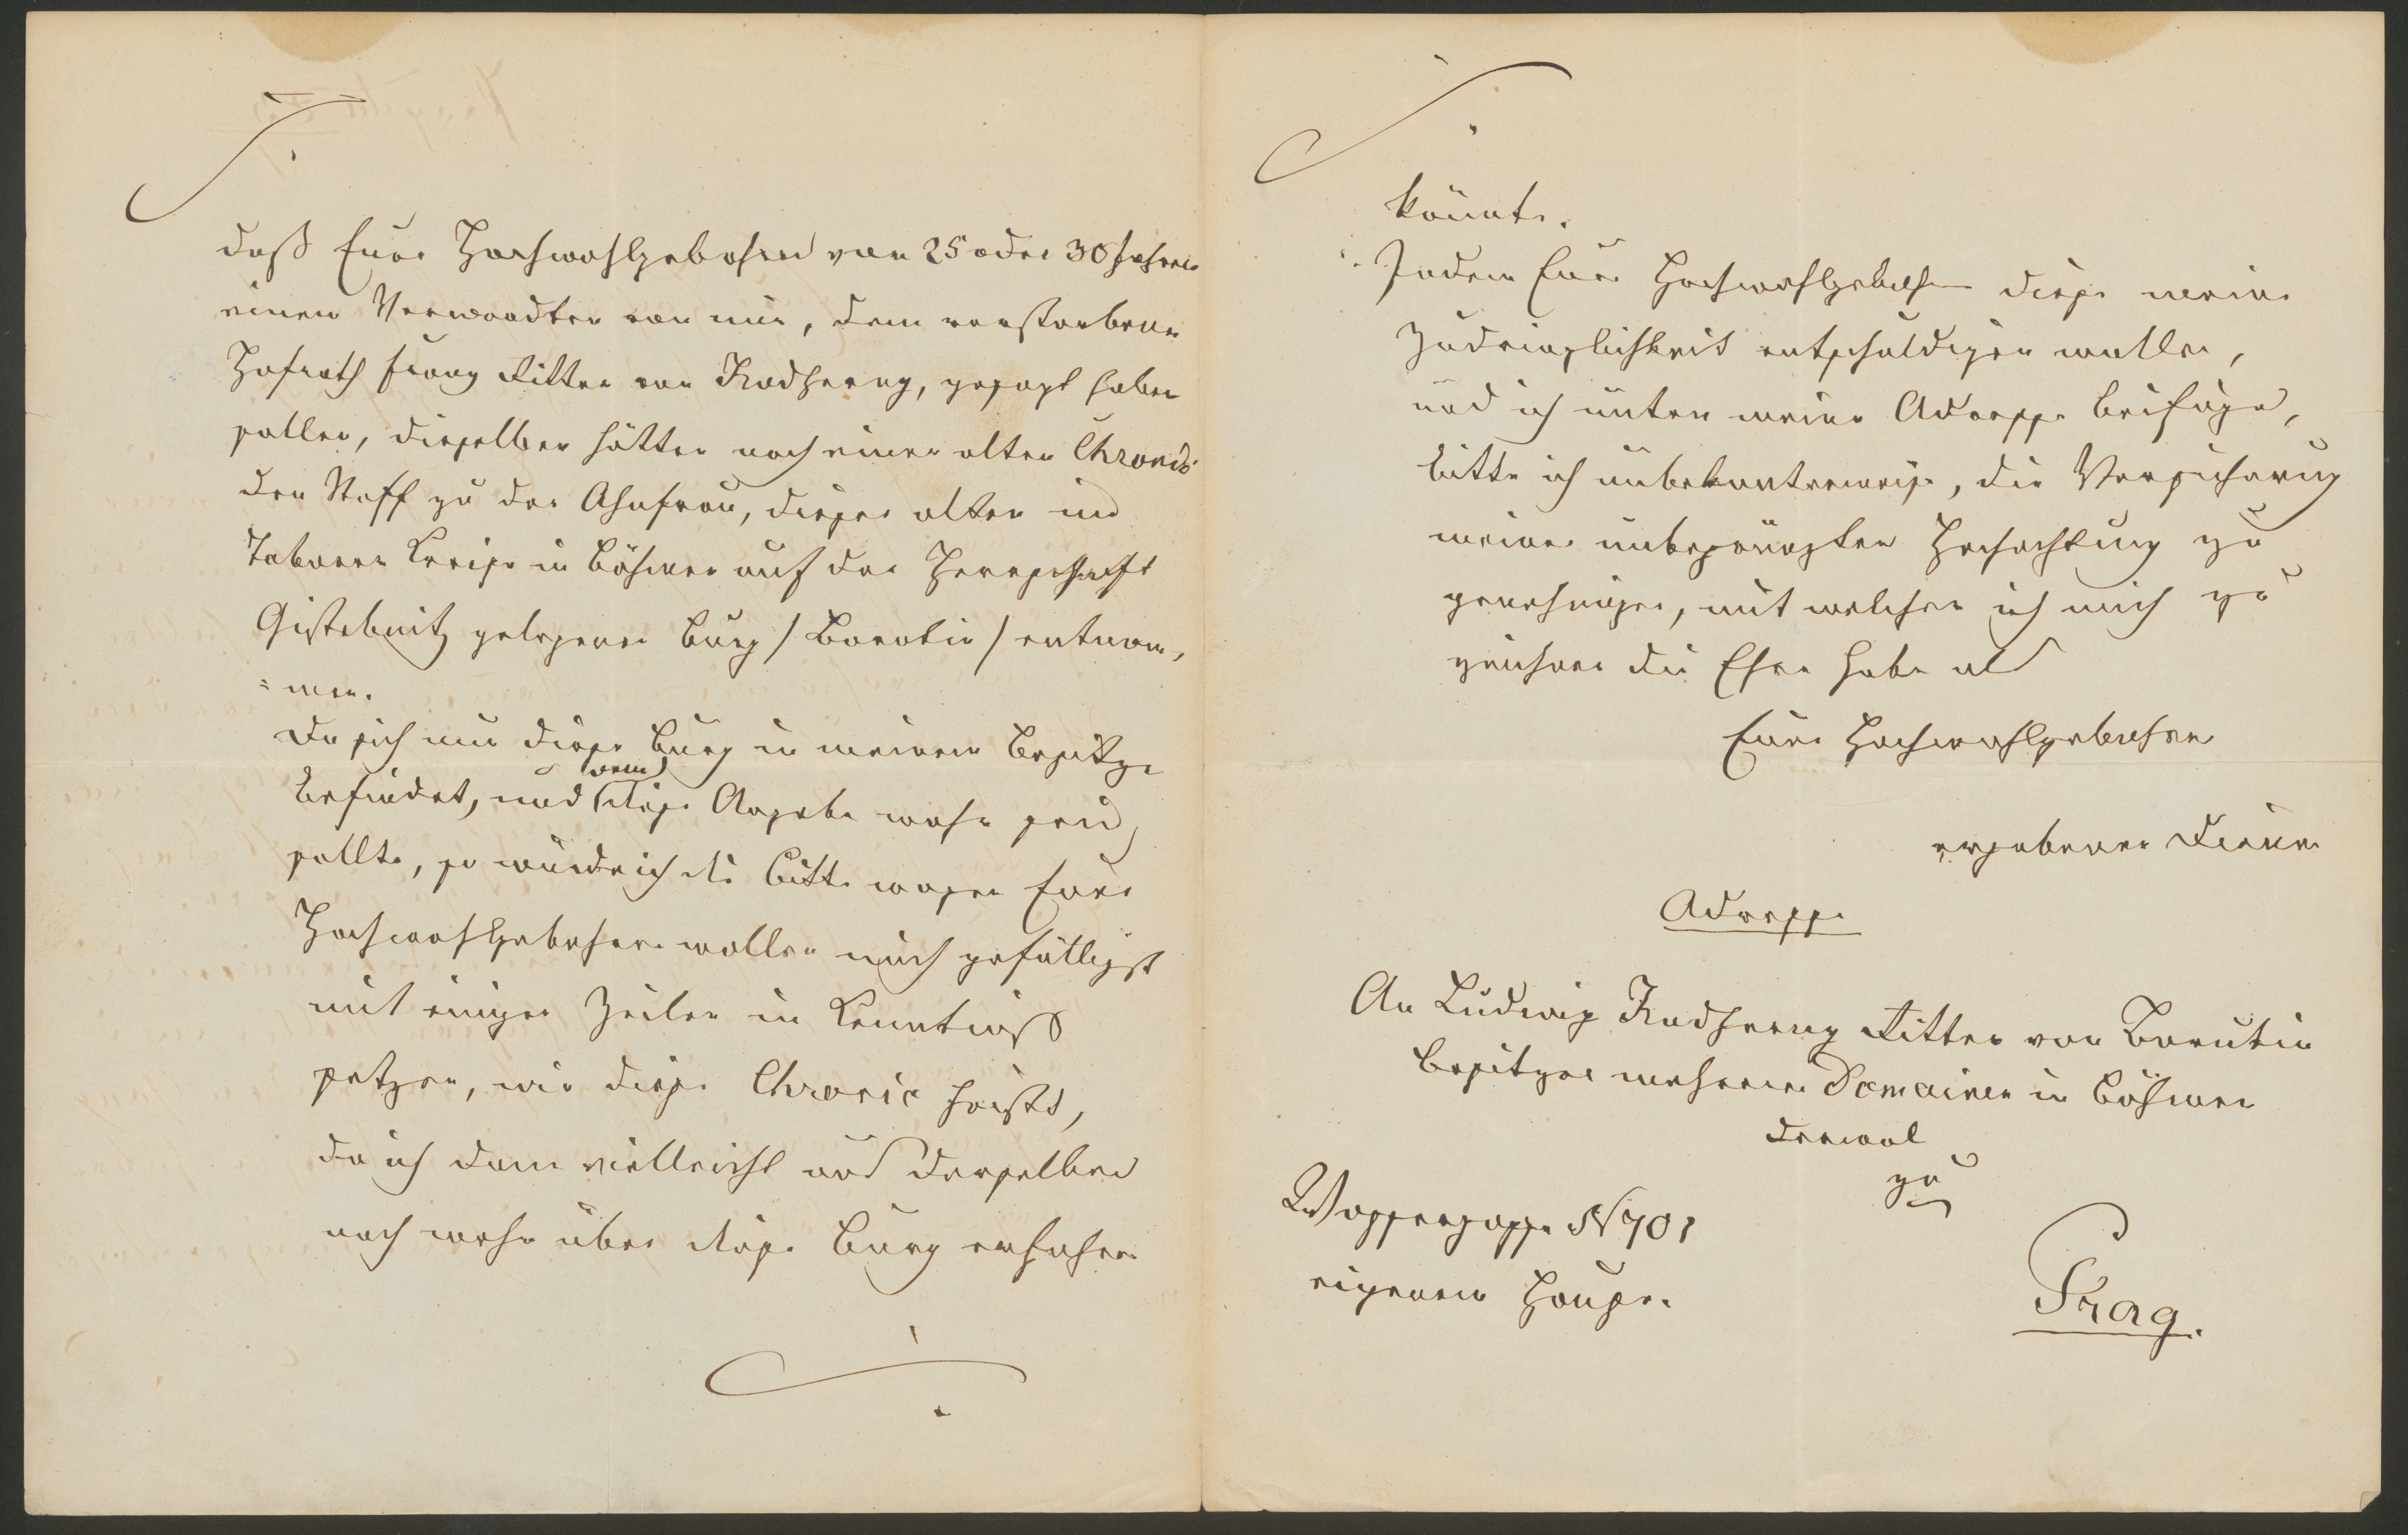 daß Euer Hochwohlgebohren von 25 oder 30 Jahren
einem Verwandten von mir, dem verstorbenen
Hofrath Franz Ritter von Nadherny, gesagt haben
sollen, dieselben hätten nach einer alten Chronik
den Stoff zu der Ahnfrau, dieser alten im
Taborer Kreise in Böhmen auf der Herrschaft
Gistebnitz gelegenen Burg /Borotin/ entnom,
=men.
Da sich nun diese Burg in meinem Besitze
befindet, und wenn diese Angabe wahr seyn
sollte, so würde ich die Bitte wagen Euer
Hochwohlgebohren wollen mich gefälligst
mit einigen Zeilen in Kenntniß
setzen, wie diese Chronic heißt,
da ich dann vielleicht aus derselben
noch mehr über diese Burg erfahren
könnte.
Indem Euer Hochwohlgebohren diese meine
Zudringlichkeit entschuldigen wollen,
und ich unten meine Adresse beifüge,
bitte ich unbekannterweise, die Versicherung
meiner unbegränzten Hochachtung zu
genehmigen, mit welcher ich mich zu
zeichnen die Ehre habe als
Euer Hochwohlgebohren
ergebener Diener
Adresse
An Ludwig Nadherny Ritter von Borutin
Besitzer mehrerer Domainen in Böhmen
derwal
zu
Wassergasse N 701
eigenem Hause.
Prag.